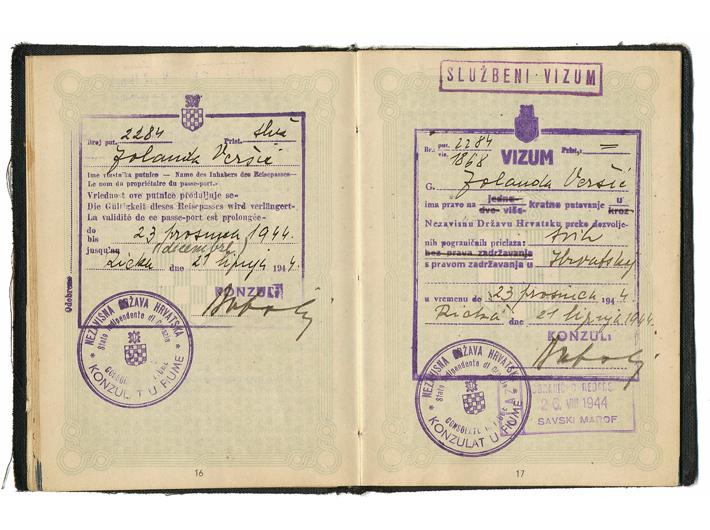 Broj put. 2284 Prist.
Jolanda Veršić
Ime vlastnika putnice — Name des Inhabers des Reisepasses—
Le nom du propriétaire du passe-port.—
Vriednost ove putnice produljuje se—
Die Gültigkeit dieses Reisepasses wird verlängert—
La validité de ce passe-port est prolongée—
do
bis 23 prosinca 1944.
jusqu'au (decembre)
dne 21 lipnja 1944.
KONZUL
Odobreno
NEZAVISNA DRŽAVA HRVATSKA
Stato Indipendente di Croazia
KONZULAT U FIUME
16
SLUŽBENI VIZUM
Br. put. 2284 Prist. =
vis. 1868 VIZUM
G. Jolanda Veršić
ima pravo na jedno kratno putovanje u
dvo više kroz
Nezavisnu Državu Hrvatsku preko dozvolje-
nih pograničnih prielaza: svih
bez prava zadržavanja
s pravom zadržavanja u Hrvatskoj
u vremenu do 23 prosinca 1944.
dne 21 lipnja 1944.
KONZUL:
NEZAVISNA DRŽAVA HRVATSKA
Stato Indipendente di Croazia
CONSOLATO IN FIUME
KONZULAT U FIUME
26 VIII 1944
SAVSKI MAROF
17